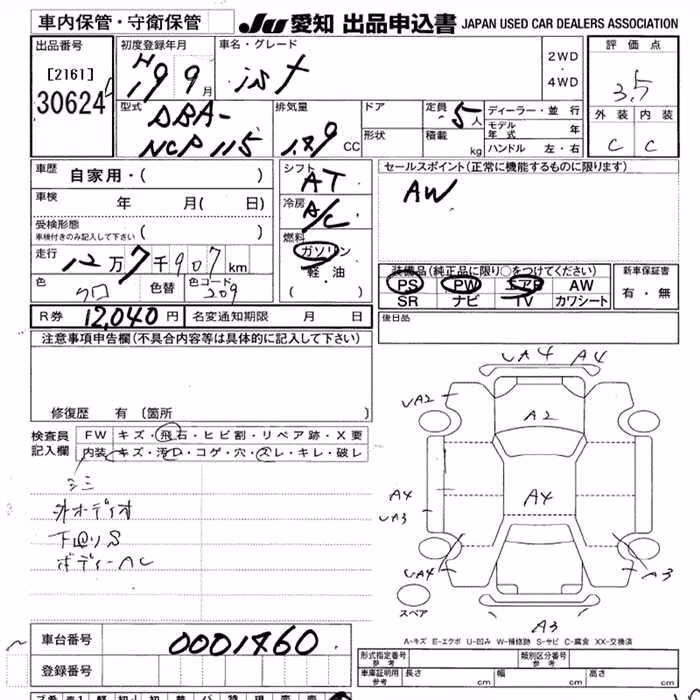 車内保管・守衛保管
JU 愛知 出品申込書 JAPAN USED CAR DEALERS ASSOCIATION
出品番号
[2161]
30624
初度登録年月
H19 9月
車名・グレード
ist
2WD
・
4WD
評価点
3.5
外装 内装
C C
型式
DBA-
NCP115
排気量
CC
ドア
形状
定員 5人
積載 kg
ディーラー・並行
モデル年式 年
ハンドル 左・右
車歴
自家用・( )
車検 年 月( 日)
受検形態
車検付きのみ記入して下さい ( )
走行 12万7千907km
色 クロ 色替 色コード 209
シフト
AT
冷房
A/C
燃料
ガソリン
軽油
( )
セールスポイント(正常に機能するものに限ります)
AW
装備品(純正品に限り○をつけてください)
PS PW エアB AW
SR ナビ TV カワシート
新車保証書
有・無
R券 12,040円 名変通知期限 月 日
後日品
注意事項申告欄(不具合内容等は具体的に記入して下さい)
修復歴 有〔箇所 〕
検査員
記入欄
FW キズ・飛石・ヒビ割・リペア跡・X要
内装 キズ・汚レ・コゲ・穴・スレ・キレ・破レ
シミ
外オーディオ
下回りS
UA4 A4
UA2
A2
A4
A4
UA3
UA4
A3
A3
スペア
A-キズ E-エクボ U-凹み W-補修跡 S-サビ C-腐食 XX-交換済
車台番号 0001460
登録番号
形式指定番号 参考
類別区分番号 参考
車庫証明用 参考 長さ cm 幅 cm 高さ cm